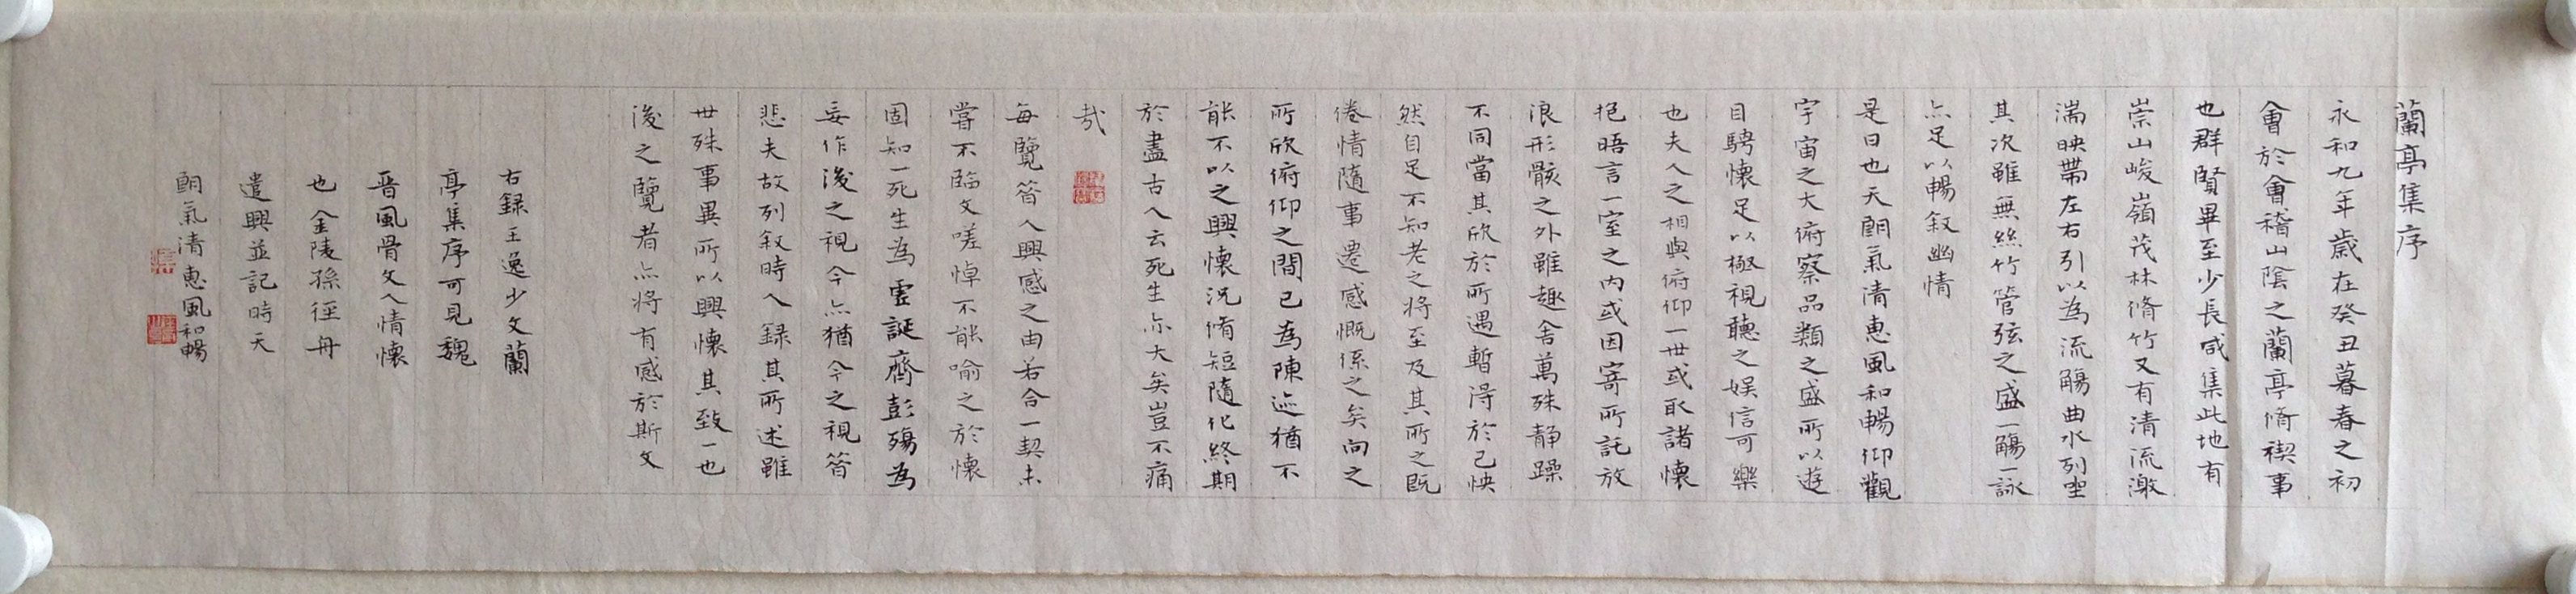 蘭亭集序
永和九年歲在癸丑暮春之初
會於會稽山陰之蘭亭脩禊事
也群賢畢至少長咸集此地有
崇山峻嶺茂林脩竹又有清流激
湍映帶左右引以為流觴曲水列坐
其次雖無絲竹管弦之盛一觴一詠
亦足以暢敘幽情
是日也天朗氣清惠風和暢仰觀
宇宙之大俯察品類之盛所以遊
目騁懷足以極視聽之娛信可樂
也夫人之相與俯仰一世或取諸懷
抱晤言一室之內或因寄所託放
浪形骸之外雖趣舍萬殊靜躁
不同當其欣於所遇暫得於己怏
然自足不知老之將至及其所之既
倦情隨事遷感慨係之矣向之
所欣俯仰之間已為陳迹猶不
能不以之興懷況脩短隨化終期
於盡古人云死生亦大矣豈不痛
哉
每覽昔人興感之由若合一契未
嘗不臨文嗟悼不能喻之於懷
固知一死生為虛誕齊彭殤為
妄作後之視今亦猶今之視昔
悲夫故列敘時人錄其所述雖
世殊事異所以興懷其致一也
後之覽者亦將有感於斯文
右錄王逸少文蘭
亭集序可見魏
晉風骨文人情懷
也金陵孫徑舟
遣興並記時天
朗氣清惠風和暢